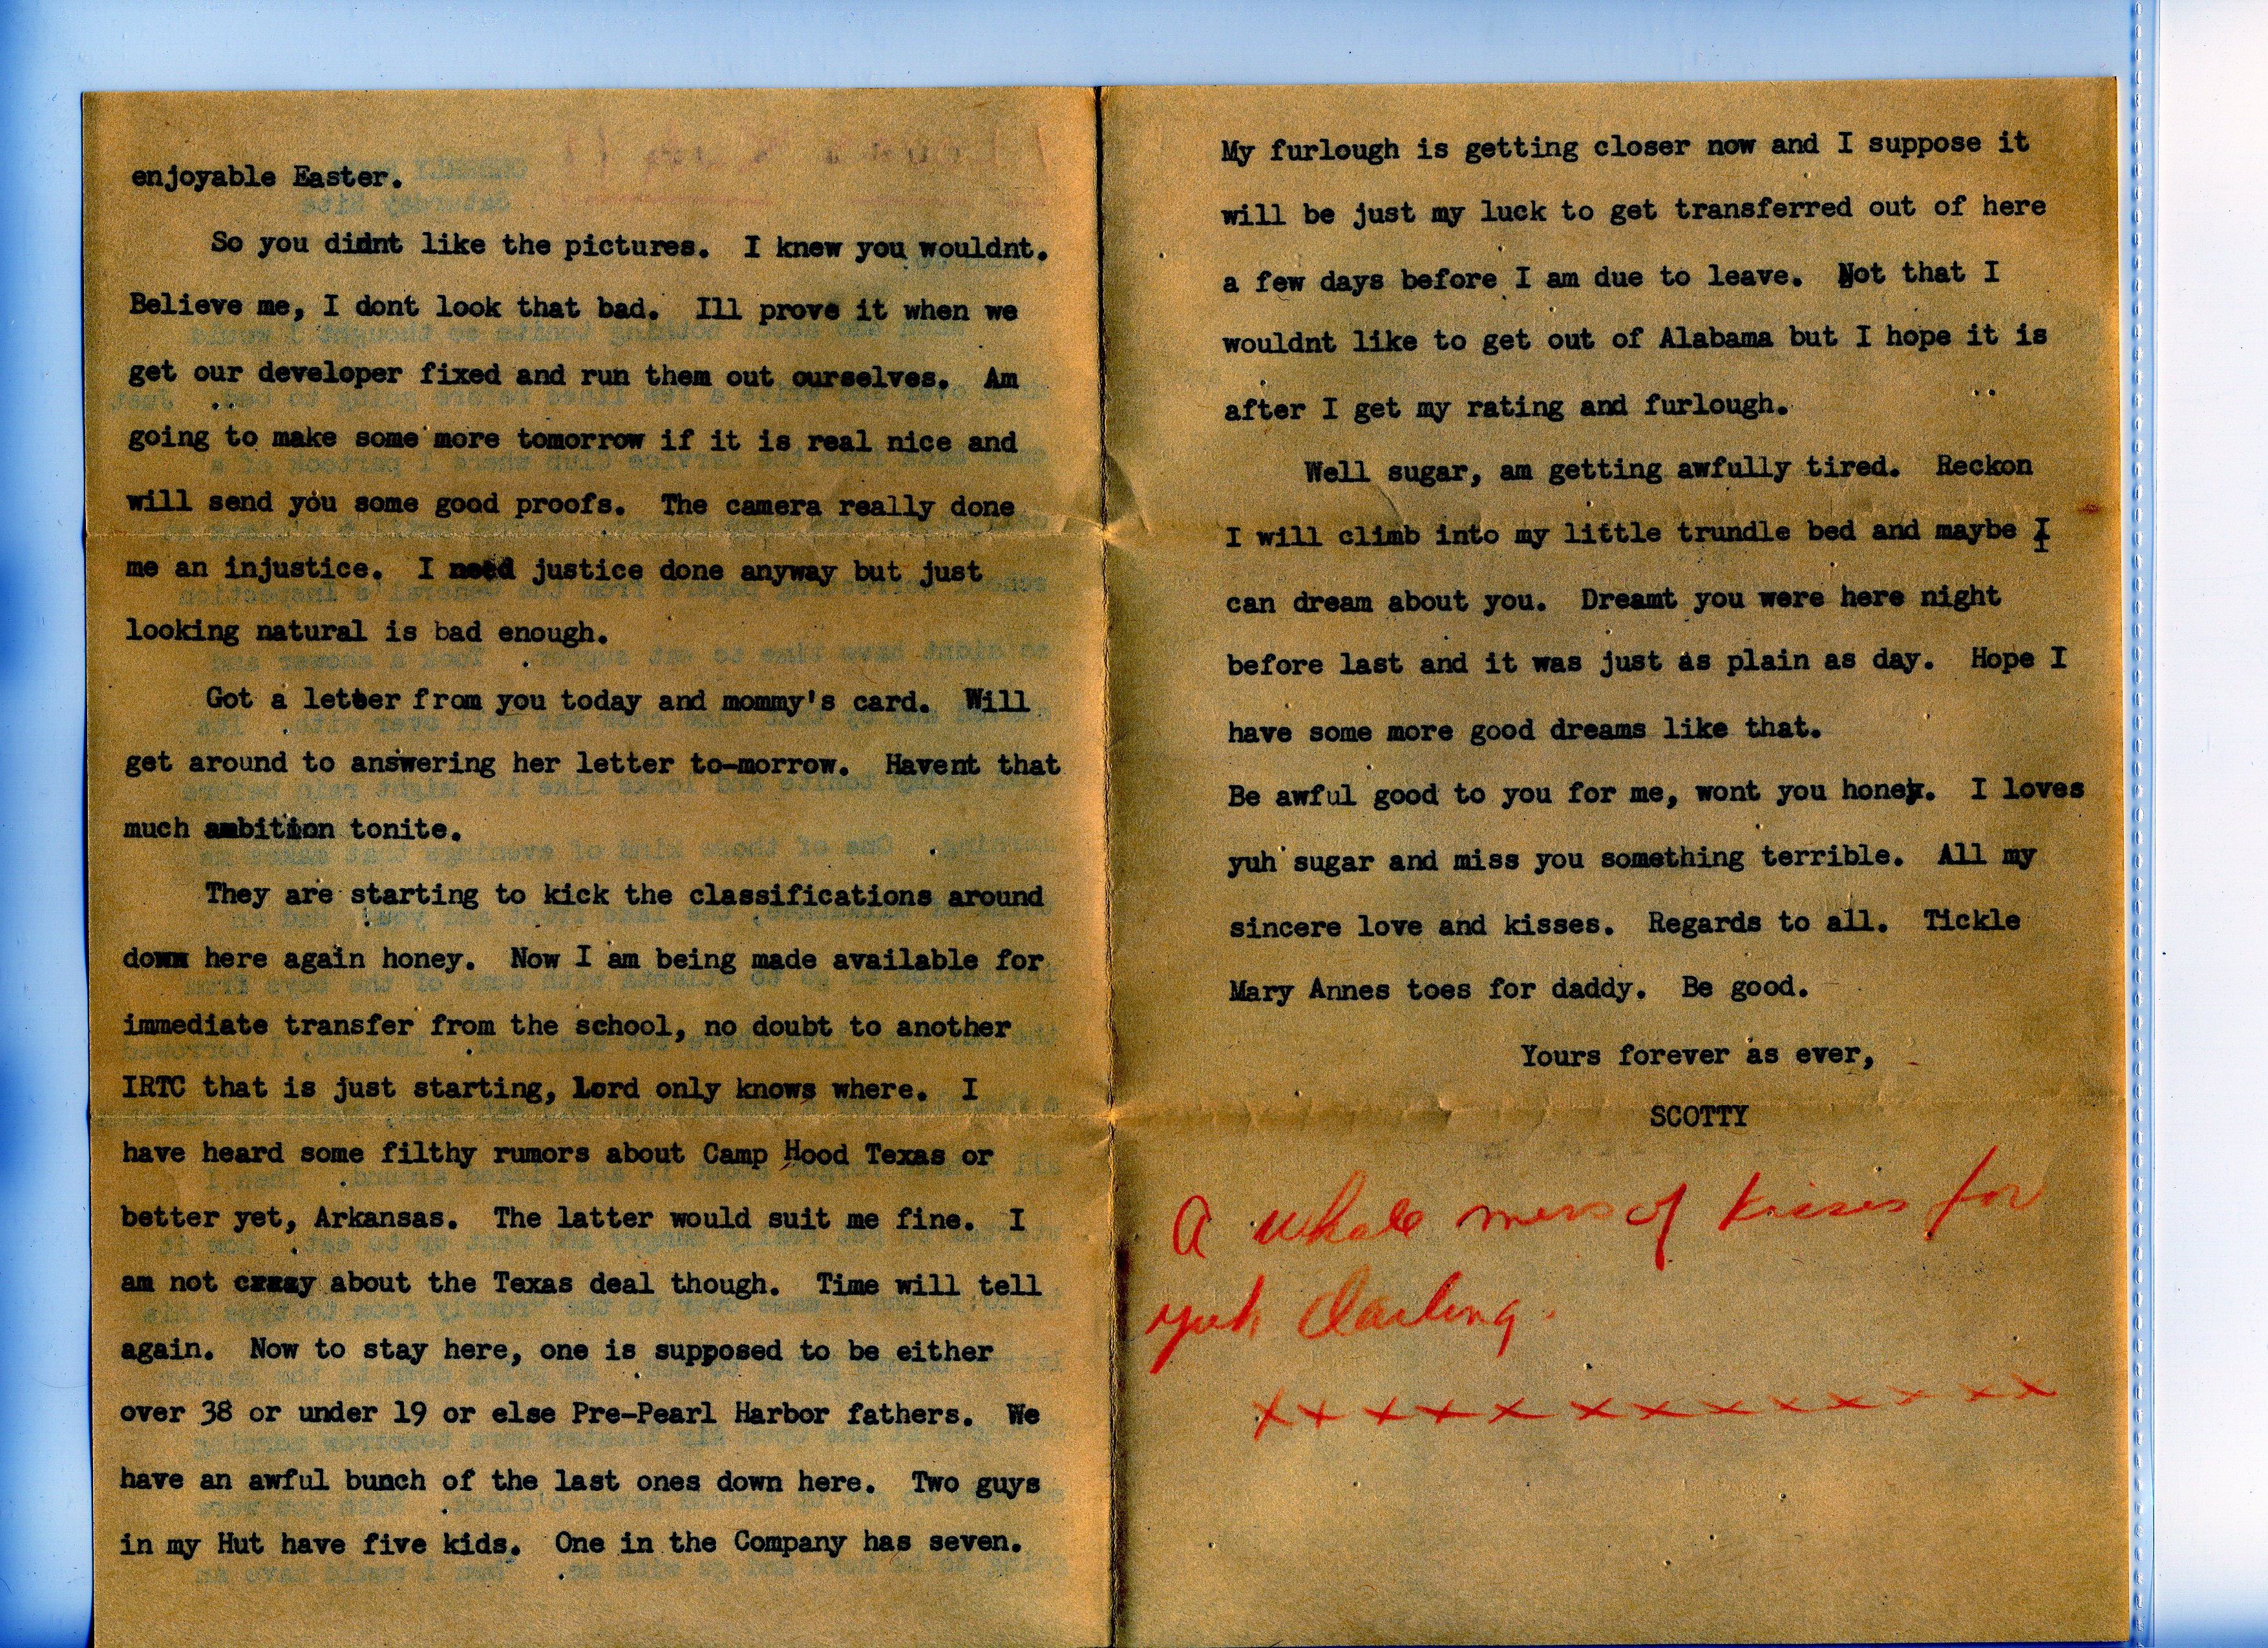 enjoyable Easter.
So you didnt like the pictures. I knew you wouldnt.
Believe me, I dont look that bad. Ill prove it when we
get our developer fixed and run them out ourselves. Am
going to make some more tomorrow if it is real nice and
will send you some good proofs. The camera really done
me an injustice. I need justice done anyway but just
looking natural is bad enough.
Got a letter from you today and mommy's card. Will
get around to answering her letter to-morrow. Havent that
much ambition tonite.
They are starting to kick the classifications around
down here again honey. Now I am being made available for
immediate transfer from the school, no doubt to another
IRTC that is just starting, Lord only knows where. I
have heard some filthy rumors about Camp Hood Texas or
better yet, Arkansas. The latter would suit me fine. I
am not crazy about the Texas deal though. Time will tell
again. Now to stay here, one is supposed to be either
over 38 or under 19 or else Pre-Pearl Harbor fathers. We
have an awful bunch of the last ones down here. Two guys
in my Hut have five kids. One in the Company has seven.
My furlough is getting closer now and I suppose it
will be just my luck to get transferred out of here
a few days before I am due to leave. Not that I
wouldnt like to get out of Alabama but I hope it is
after I get my rating and furlough.
Well sugar, am getting awfully tired. Reckon
I will climb into my little trundle bed and maybe I
can dream about you. Dreamt you were here night
before last and it was just as plain as day. Hope I
have some more good dreams like that.
Be awful good to you for me, wont you honey. I loves
yuh sugar and miss you something terrible. All my
sincere love and kisses. Regards to all. Tickle
Mary Annes toes for daddy. Be good.
Yours forever as ever,
SCOTTY
A whole mess of kisses for
yuh darling.
x x x x x x x x x x x x x x